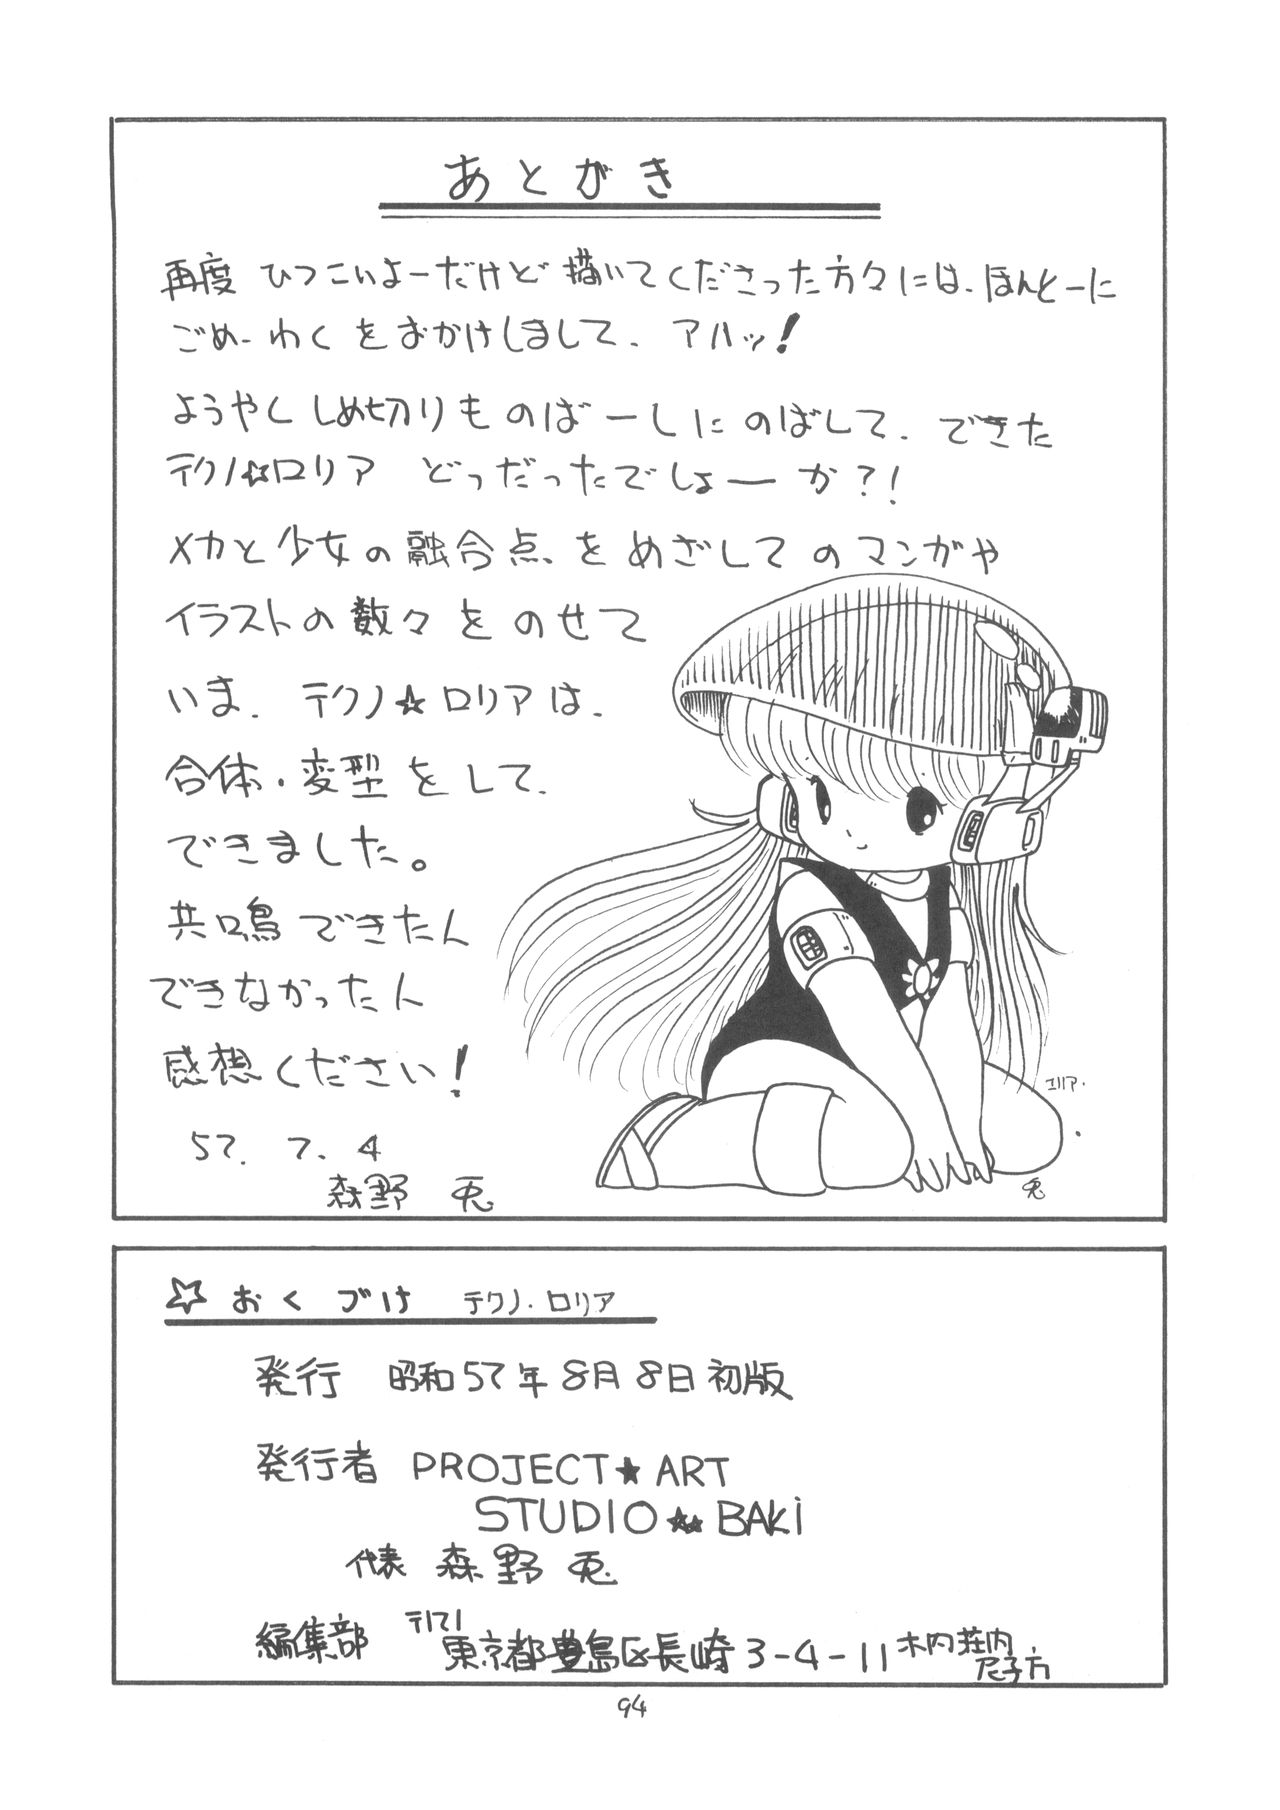 あとがき
再度 ひつこいよーだけど 描いてくださった方々には、ほんとーに
ごめーわくをおかけしまして、アハッ!
ようやくしめ切りものばーしにのばして、できた
テクノ☆ロリア どっだったでしょーか?!
メカと少女の融合点をめざしてのマンガや
イラストの数々をのせて
いま、テクノ☆ロリアは、
合体・変型をして、
できました。
共鳴できたん
できなかったん
感想ください!
57. 7. 4
森野 兎
エリア.
兎
☆おくづけ テクノ・ロリア
発行 昭和57年8月8日初版
発行者 PROJECT★ART
STUDIO★★BAKi
代表 森野 兎
編集部 〒171
東京都豊島区長崎3-4-11 木内荘内
尼子方
94